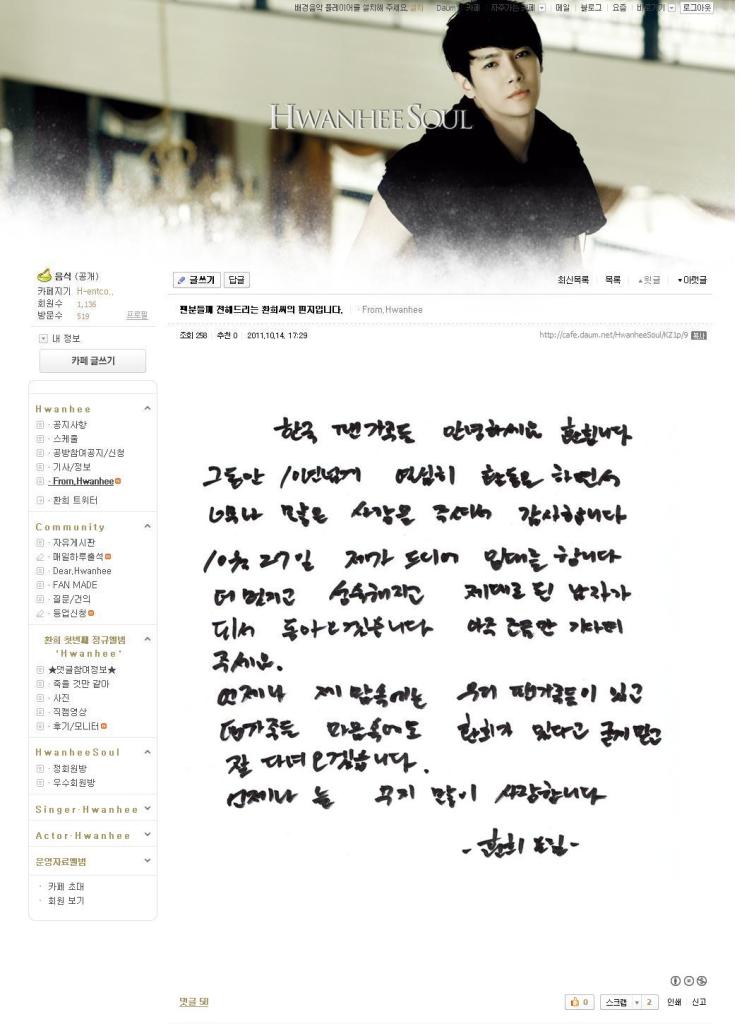 배경음악 플레이어를 설치해 주세요. 설치 Daum 카페 자주가는 카페 메일 블로그 요즘 바로가기 로그아웃
HWANHEESOUL
음석 (공개)
카페지기 H-entco..
회원수 1,136
방문수 519 프로필
내 정보
카페 글쓰기
Hwanhee
공지사항
스케줄
공방참여공지/신청
기사/정보
From,Hwanhee
환희 트위터
Community
자유게시판
매일하루출석
Dear,Hwanhee
FAN MADE
질문/건의
등업신청
환희 첫번째 정규앨범
'Hwanhee'
★댓글참여정보★
죽을 것만 같아
사진
직캠영상
후기/모니터
HwanheeSoul
정회원방
우수회원방
Singer·Hwanhee
Actor·Hwanhee
운영자료앨범
카페 초대
회원 보기
글쓰기 답글 최신목록 목록 ▲윗글 ▼아랫글
팬분들께 전해드리는 환희씨의 편지입니다. From,Hwanhee
조회 258 추천 0 2011,10,14, 17:29 http://cafe.daum.net/HwanheeSoul/KZ1p/9 복사
한국 팬가족들 안녕하세요 환희입니다
그동안 10년넘게 열심히 활동을 하면서
너무나 많은 사랑을 주셔서 감사합니다
10월 27일 제가 드디어 입대를 합니다
더 멋지고 성숙해지고 제대로 된 남자가
되서 돌아오겠습니다 아주 조금만 기다려
주세요.
언제나 제 맘속에는 우리 팬가족들이 있고
팬가족들 마음속에도 환희가 있다고 굳게 믿고
잘 다녀오겠습니다.
언제나 늘 무지 많이 사랑합니다
- 환희 드림 -
댓글 58 0 스크랩 2 인쇄 신고